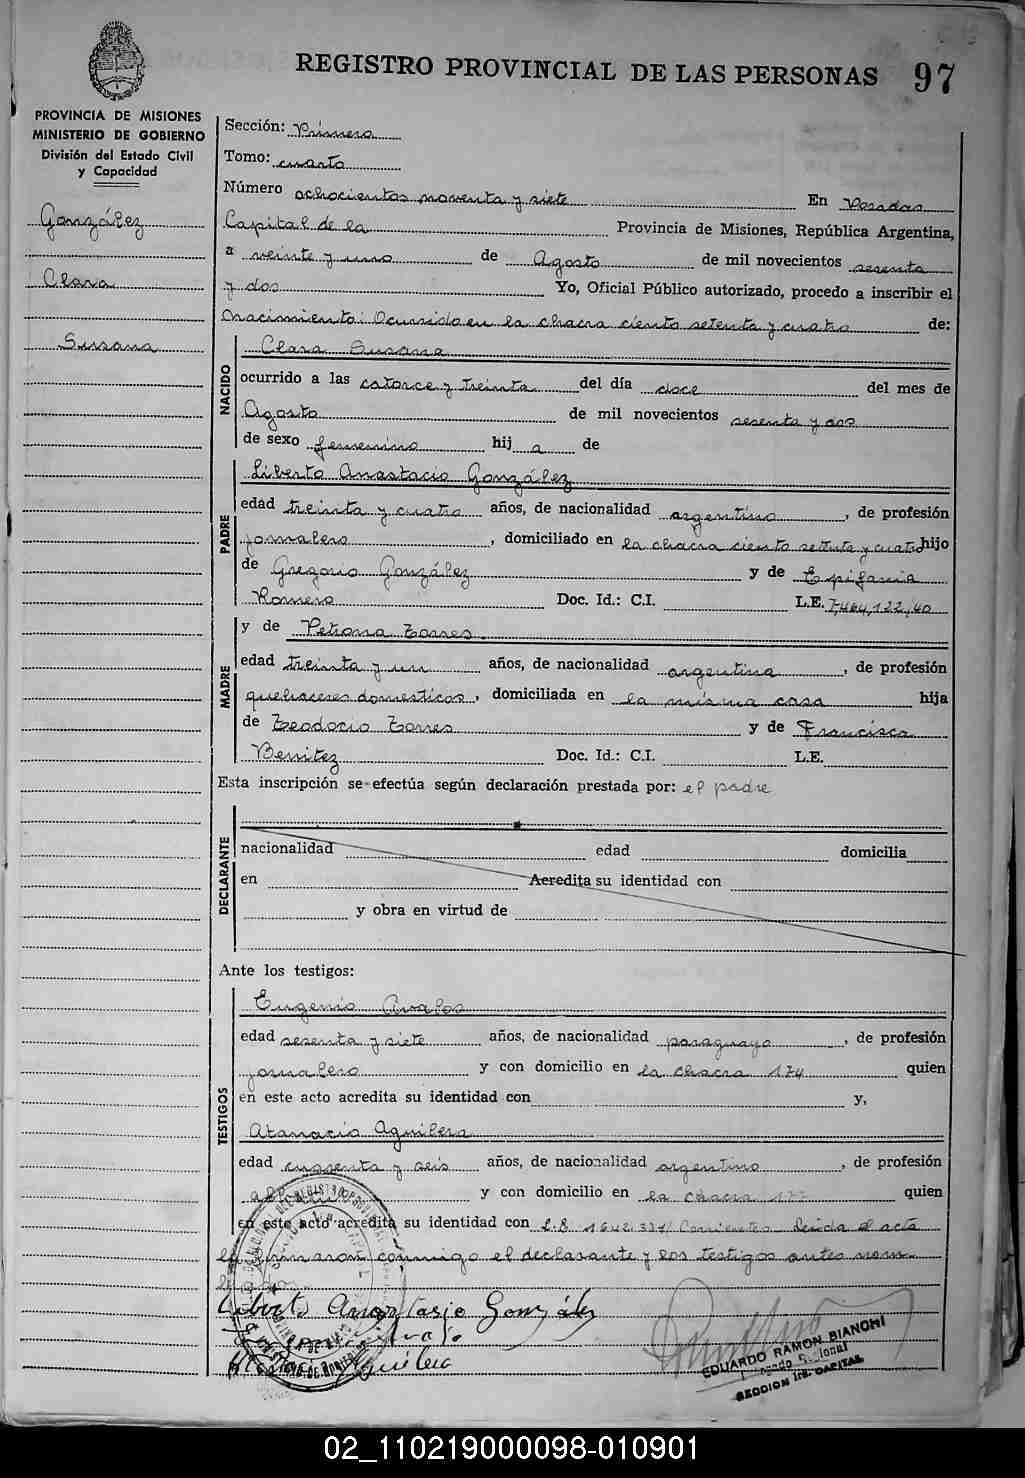 REGISTRO PROVINCIAL DE LAS PERSONAS 97
PROVINCIA DE MISIONES
MINISTERIO DE GOBIERNO
División del Estado Civil
y Capacidad
González
Clara
Susana
Sección: Primera
Tomo: cuarto
Número ochocientos noventa y siete En Posadas
Capital de la Provincia de Misiones, República Argentina,
a veinte y uno de Agosto de mil novecientos sesenta
y dos Yo, Oficial Público autorizado, procedo a inscribir el
nacimiento: Ocurrido en la chacra ciento setenta y cuatro de:
NACIDO
Clara Susana
ocurrido a las catorce y treinta del día doce del mes de
Agosto de mil novecientos sesenta y dos
de sexo femenino hij a de
PADRE
Liberto Anastacio González
edad treinta y cuatro años, de nacionalidad argentino, de profesión
jornalero, domiciliado en la chacra ciento setenta y cuatro hijo
de Gregorio González y de Epifania
Romero Doc. Id.: C.I. L.E. 7,464,122,40
MADRE
y de Petrona Torres.
edad treinta y un años, de nacionalidad argentina, de profesión
quehaceres domesticos, domiciliada en la misma casa hija
de Teodocio Torres y de Francisca
Benitez Doc. Id.: C.I. L.E.
Esta inscripción se efectúa según declaración prestada por: el padre
DECLARANTE
nacionalidad edad domicilia
en Acredita su identidad con
y obra en virtud de
Ante los testigos:
TESTIGOS
Eugenio Avalos
edad sesenta y siete años, de nacionalidad paraguayo, de profesión
jornalero y con domicilio en la chacra 174 quien
en este acto acredita su identidad con y,
Atanacio Aguilera
edad cuarenta y seis años, de nacionalidad argentino, de profesión
y con domicilio en la chacra quien
en este acto acredita su identidad con Corrientes. Leida el acta
conmigo el declarante y los testigos antes nom-
Liberto Anastasio González
Aguilera
EDUARDO RAMON BIANCHI
SECCION 1ra. CAPITAL
02_110219000098-010901